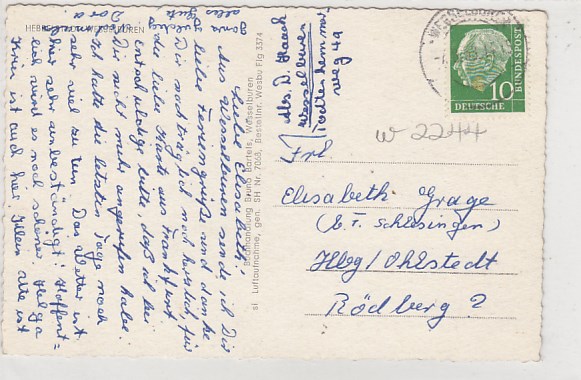 HEBBEL
WESSELBUREN
Liebe Elisabeth!
Aus Wesselburen sende ich Dir
liebe Feriengrüße und danke
Dir nachträglich noch herzlich für
die liebe Karte aus Frankfurt
Entschuldige bitte, daß ich bei
Dir nicht mehr angerufen habe.
Ich hatte die letzten Tage noch
sehr viel zu tun. Das Wetter ist
hier sehr unbeständig! Hoffent=
lich wird es noch schöner. Helga
ist auch hier. Ihnen alle
ganz
alles Gute
Dora
Buchhandlung Bruno Bartels, Wesselburen
sl Luftaufnahme, gen. SH Nr. 7063, Bestellnr. Wesbu Flg 3374
Abs. D. Haack
Wesselburen
weg 49
WESSELBUREN
DEUTSCHE
BUNDESPOST
10
W 2244
Frl
Elisabeth Grage
(b. F. Schlesinger)
Hbg/Ohlstedt
Rödberg 2